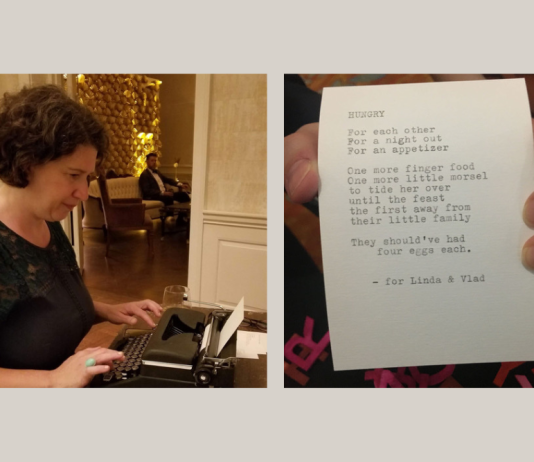 HUNGRY
For each other
For a night out
For an appetizer
One more finger food
One more little morsel
to tide her over
until the feast
the first away from
their little family
They should've had
four eggs each.
- for Linda & Vlad